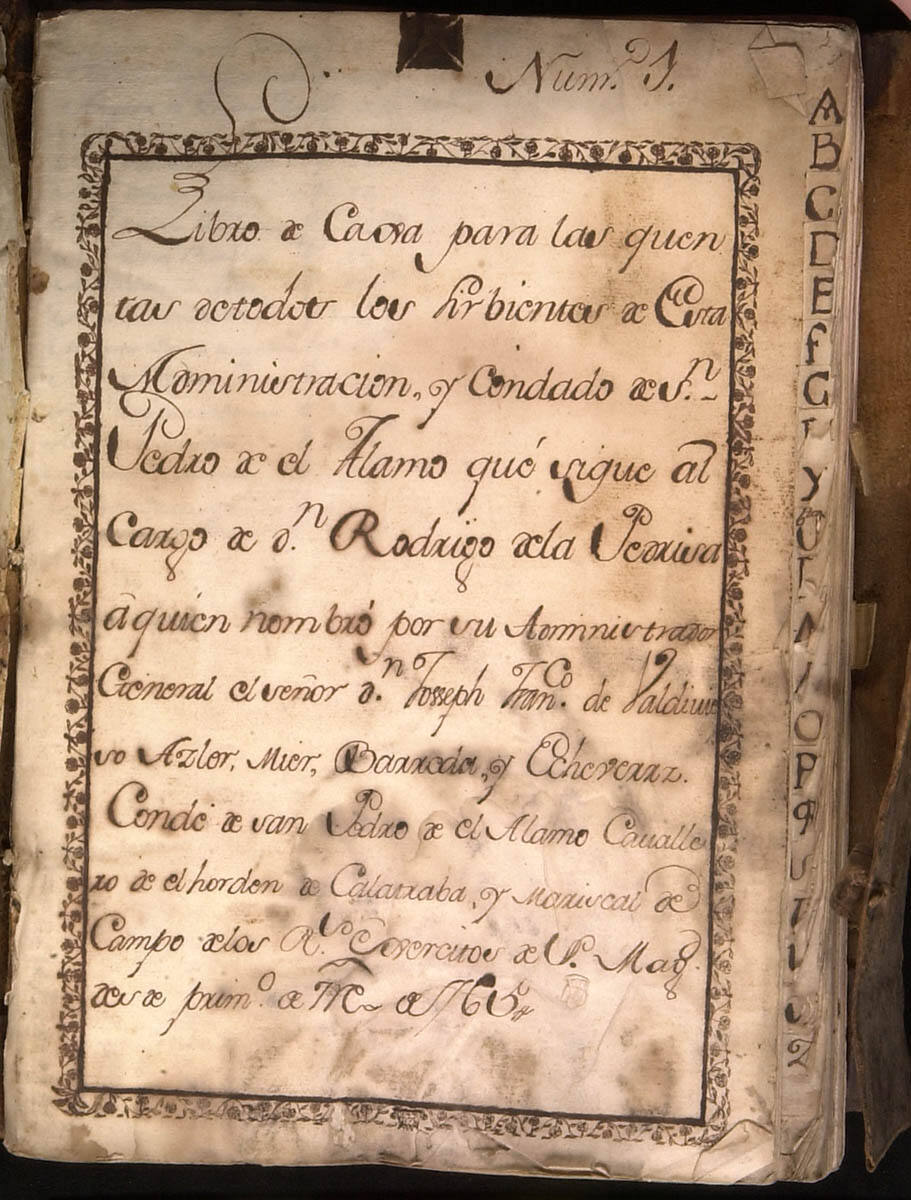 Num.º 1.
Libro de Caxa para las quen
tas de todos los sirbientes de Esta
Administracion, y Condado de S.n
Pedro de el Alamo qué sigue al
Cargo de d.n Rodrigo de la Pedriza
á quien nombró por su Administrador
General el señor d.n Joseph Fran.co de Valdivie
so Azlor, Mier, Barreda, y Echeverrz.
Conde de san Pedro de el Alamo Cavalle
ro de el horden de Calatraba, y Mariscal de
Campo de los R.s Exercitos de S. Mag.
des de prim.o de
A
B
C
D
E
F
G
Y
O
P
Q
T
V
Z